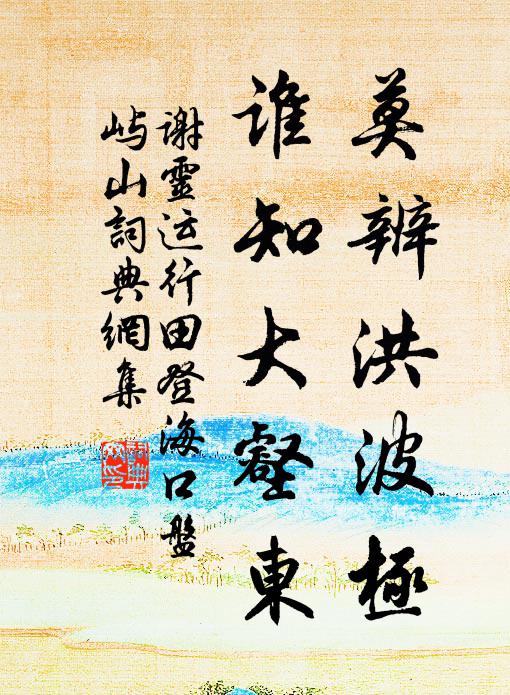 莫辨洪波極
谁知大壑東
谢靈运行田登海口盤
屿山詞典網集